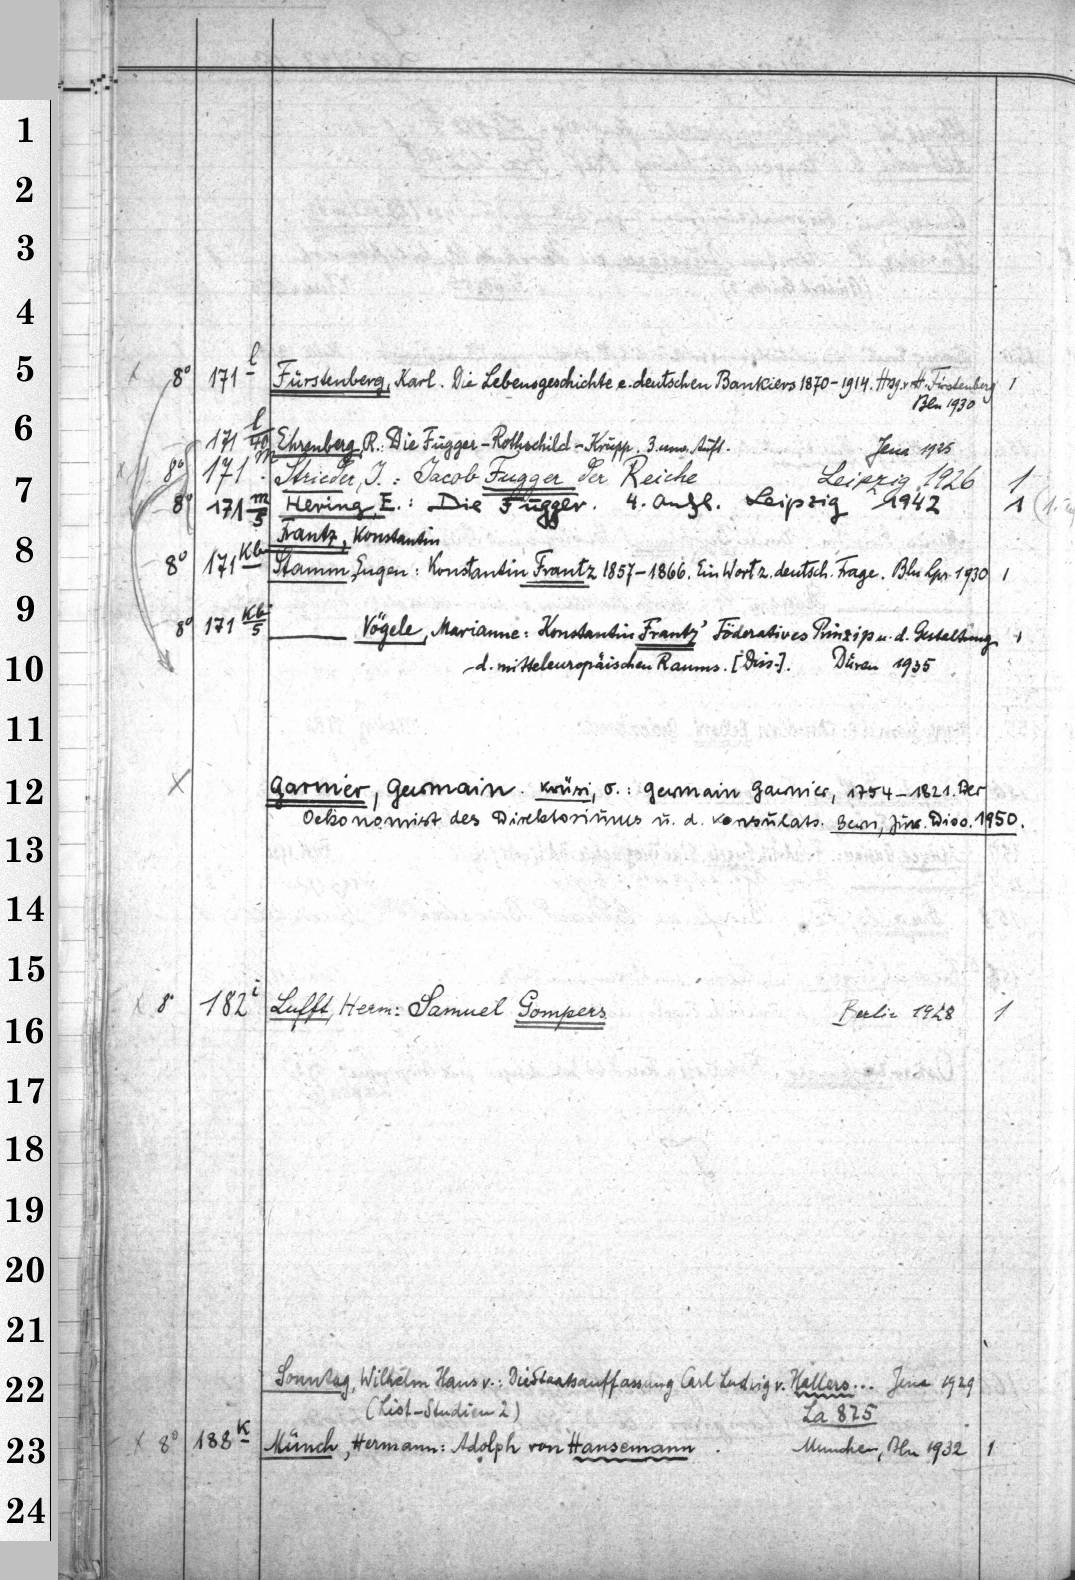 1
2
3
4
5
8° 171 l Fürstenberg, Karl. Die Lebensgeschichte e. deutschen Bankiers 1870-1914. Hsg. v. H. Fürstenberg 1
Bln 1930
6
171 l/40 Ehrenberg, R.: Die Fugger-Rothschild-Krupp. 3. unv. Aufl. Jena 1925
8° 171 m Strieder, J.: Jacob Fugger der Reiche Leipzig 1926 1
7
8° 171 m/5 Hering, E.: Die Fugger. 4. Aufl. Leipzig 1942 1
Frantz, Konstantin
8
8° 171 Kb Stamm, Eugen: Konstantin Frantz 1857-1866. Ein Wort z. deutsch. Frage. Bln Lpz. 1930 1
9
8° 171 Kb/5 Vögele, Marianne: Konstantin Frantz' Föderatives Prinzip u. d. Gestaltung 1
10
d. mitteleuropäischen Raums. [Diss.]. Düren 1935
11
12
Garnier, Germain. Krüsi, O.: Germain Garnier, 1754-1821. Der
Oekonomist des Direktoriums u. d. Konsulats. Bern, Jur. Diss. 1950.
13
14
15
8° 182 i Lufft, Herm: Samuel Gompers Berlin 1928 1
16
17
18
19
20
21
22
Sonntag, Wilhelm Hans v.: Die Staatsauffassung Carl Ludwig v. Hallers... Jena 1929
(List-Studien 2) La 875
23
8° 188 K Münch, Hermann: Adolph von Hansemann. München, Bln 1932 1
24